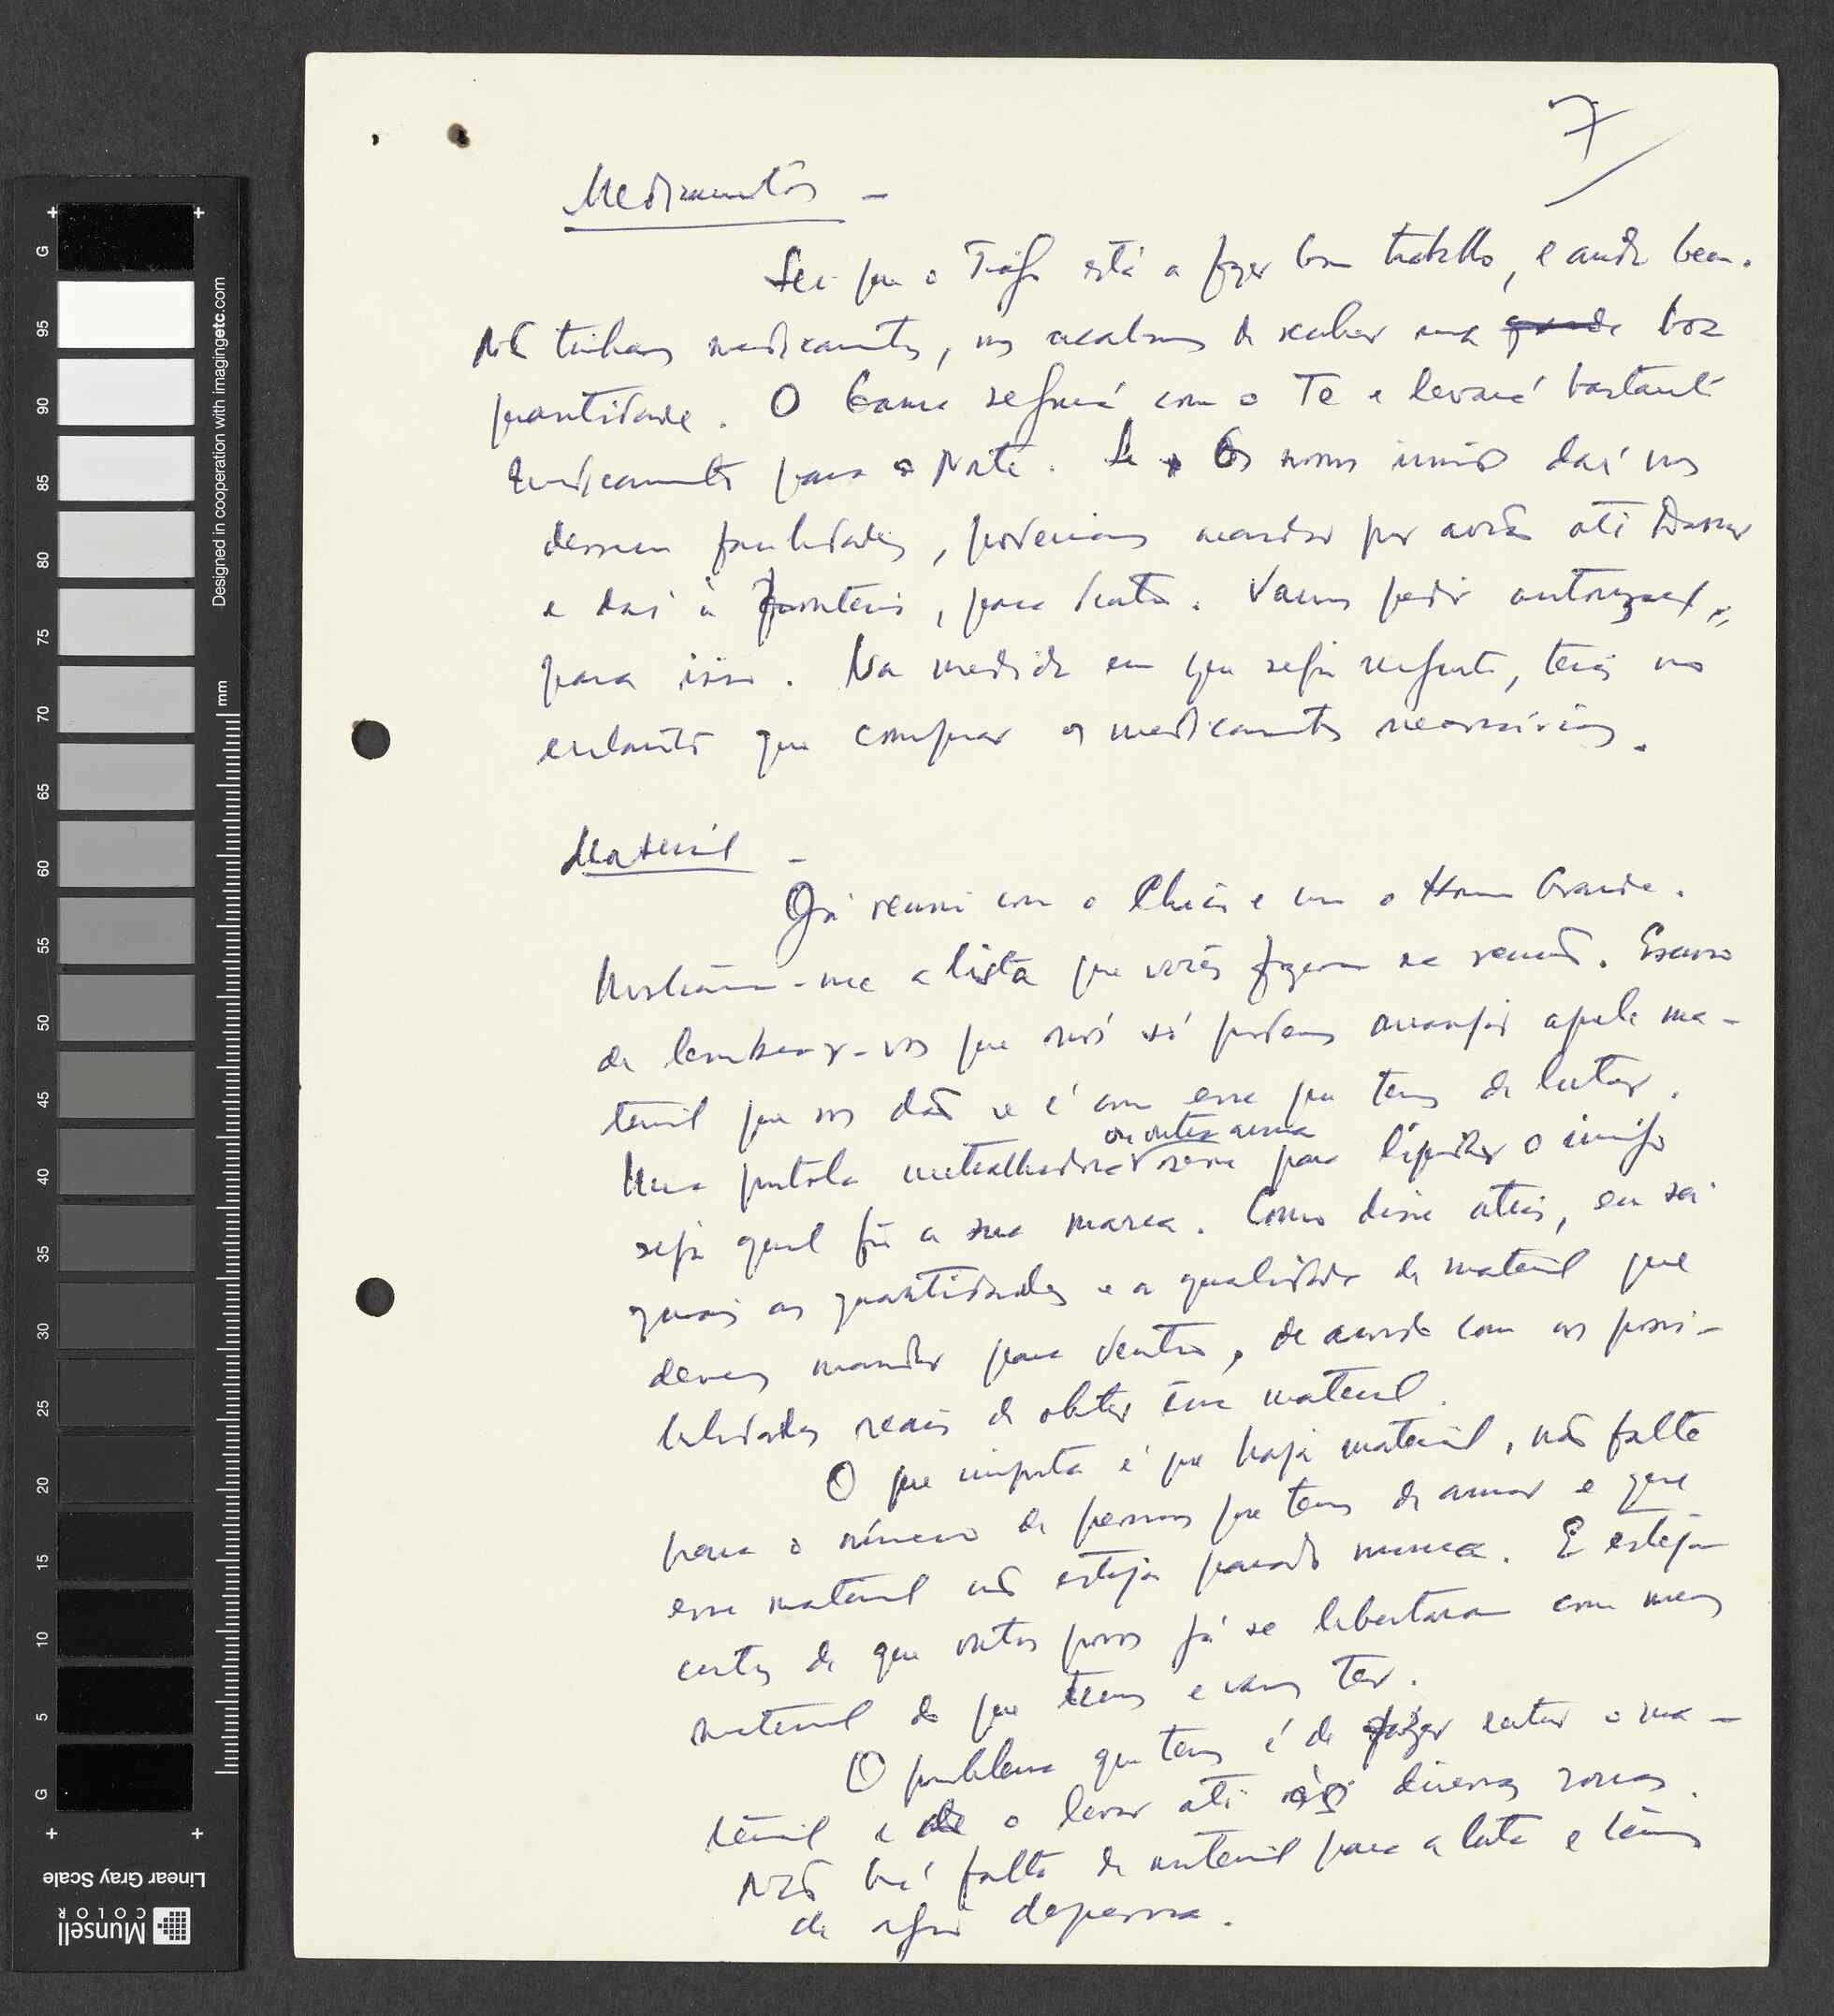 7
Medicamentos -
Sei que o Tiago está a fazer bom trabalho, e ainda bem.
Não tinhamos medicamentos, mas acabamos de receber uma grande boa
quantidade. O Gama seguirá com o Te e levará bastante
medicamento para o Norte. Se os nossos irmãos daí nos
dessem facilidades, poderiamos mandar por avião até Dakar
e daí à fronteira, para dentro. Vamos pedir autorização
para isso. Na medida em que seja urgente, terás no
entanto que comprar os medicamentos necessários.
Material -
Já reuni com o Chico e com o Homem Grande.
Mostraram-me a lista que vocês fizeram na reunião. Escuso
de lembrar-vos que nós só podemos arranjar aquele ma-
terial que nos dão e é com esse que temos de lutar.
Uma pistola metralhadora ou outra arma serve para liquidar o inimigo
seja qual fôr a sua marca. Como disse atrás, eu sei
quais as quantidades e a qualidade de material que
devemos mandar para dentro, de acordo com as possi-
bilidades reais de obter êsse material.
O que importa é que haja material, não falte
para o número de pessoas que temos de armar e que
esse material não esteja parado nunca. E estejam
certos de que outros povos já se libertaram com menos
material do que temos e vamos ter.
O problema que temos é de fazer entrar o ma-
terial e de o levar até às diversas zonas.
Não há falta de material para a luta e temos
de agir depressa.
Designed in cooperation with imagingetc.com
mm
G
95
90
85
80
75
70
65
60
55
50
45
40
35
30
25
20
15
10
5
G
Linear Gray Scale
Munsell
COLOR